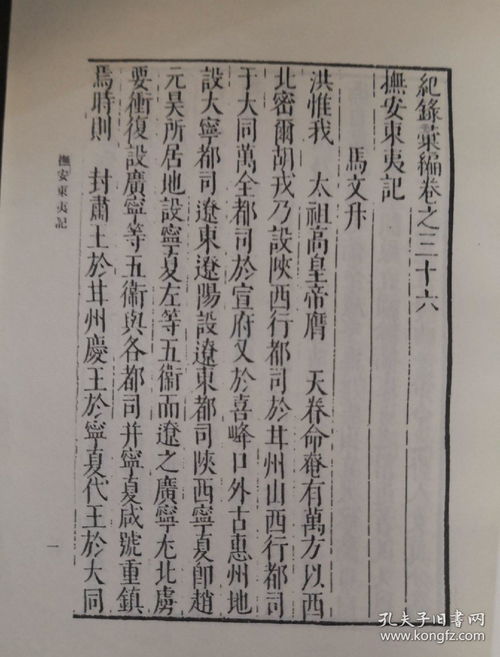 紀錄彙編卷之三十六
撫安東夷記
馬文升
洪惟我 太祖高皇帝膺 天眷命奄有萬方以西
北密爾胡戎乃設陝西行都司於甘州山西行都司
于大同萬全都司於宣府又於喜峰口外古惠州地
設大寧都司遼東遼陽設遼東都司陝西寧夏即趙
元昊所居地設寧夏左等五衞而遼之廣寧尢北虜
要衝復設廣寧等五衞與各都司并寧夏咸號重鎮
焉時則 封肅王於甘州慶王於寧夏代王於大同
撫安東夷記
一
孔夫子旧书网
www.kongfz.com